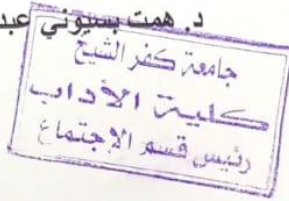 د. همت بسيوني عبد
جامعة كفر الشيخ
كلية الآداب
رئيس قسم الاجتماع